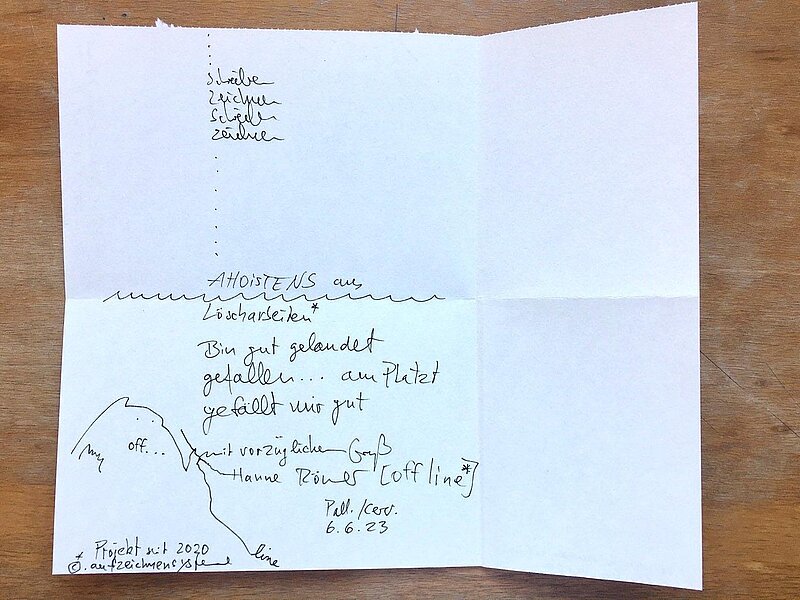 schreiben
zeichnen
schreiben
zeichnen
AHOISTENS aus
Löscharbeiten*
Bin gut gelandet
gefallen... am Platzt
gefällt mir gut
off...
mit vorzüglichem Gruß
Hanne Römer [off line*]
Pall./Kerr.
6.6.23
* Projekt seit 2020
©. aufzeichnensysteme
line